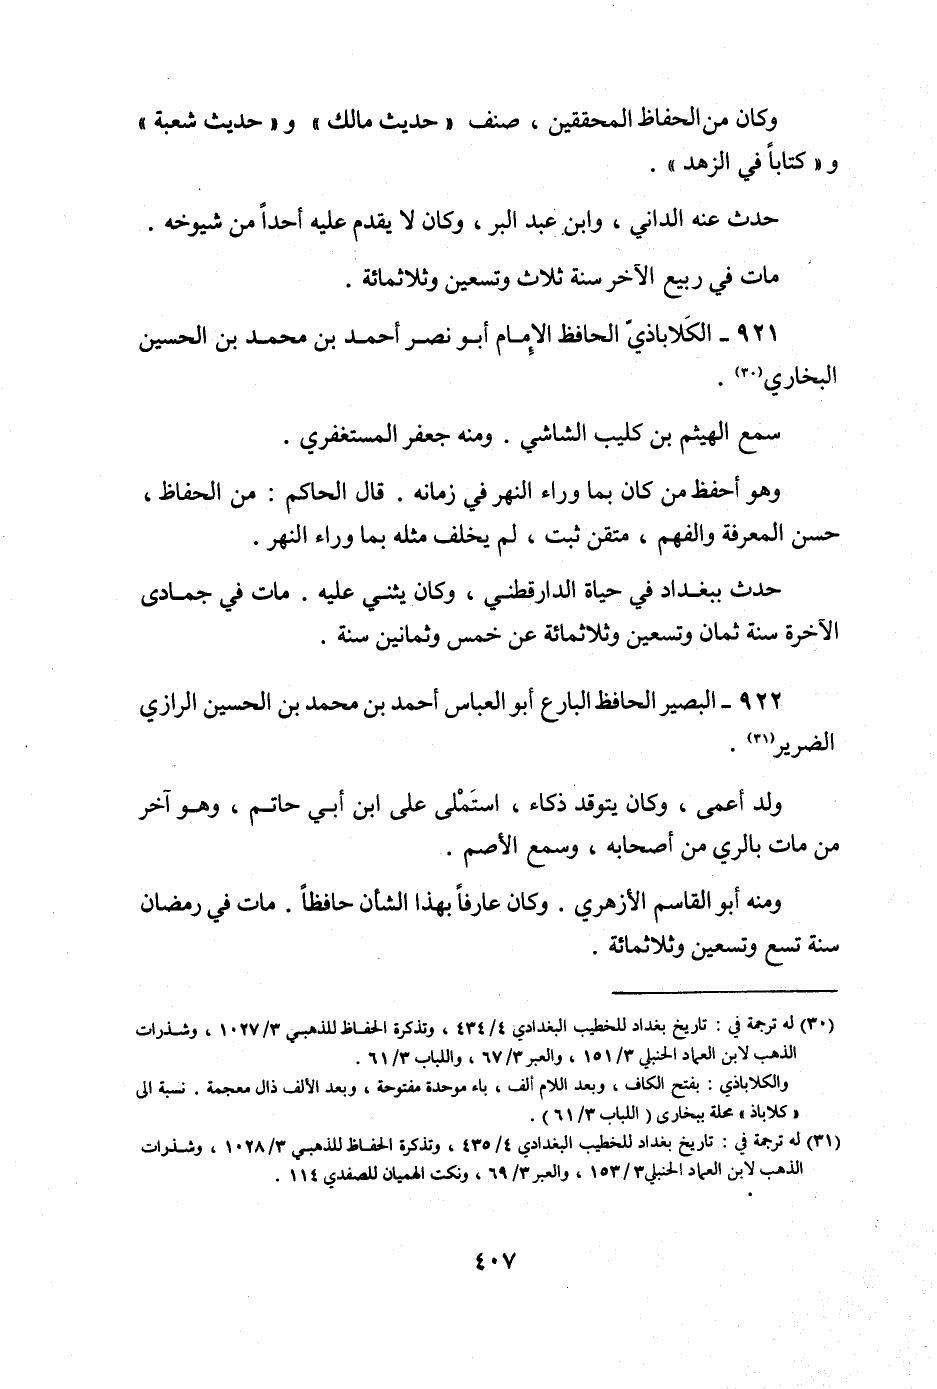 وكان من الحفاظ المحققين ، صنف « حديث مالك » و « حديث شعبة »
و « كتاباً في الزهد » .
حدث عنه الداني ، وابن عبد البر ، وكان لا يقدم عليه أحداً من شيوخه .
مات في ربيع الآخر سنة ثلاث وتسعين وثلاثمائة .
٩٢١ ـ الكَلاباذيّ الحافظ الإمام أبو نصر أحمد بن محمد بن الحسين
البخاري(٣٠) .
سمع الهيثم بن كليب الشاشي . ومنه جعفر المستغفري .
وهو أحفظ من كان بما وراء النهر في زمانه . قال الحاكم : من الحفاظ ،
حسن المعرفة والفهم ، متقن ثبت ، لم يخلف مثله بما وراء النهر .
حدث ببغداد في حياة الدارقطني ، وكان يثني عليه . مات في جمادى
الآخرة سنة ثمان وتسعين وثلاثمائة عن خمس وثمانين سنة .
٩٢٢ ـ البصير الحافظ البارع أبو العباس أحمد بن محمد بن الحسين الرازي
الضرير(٣١) .
ولد أعمى ، وكان يتوقد ذكاء ، استَمْلى على ابن أبي حاتم ، وهو آخر
من مات بالري من أصحابه ، وسمع الأصم .
ومنه أبو القاسم الأزهري . وكان عارفاً بهذا الشأن حافظاً . مات في رمضان
سنة تسع وتسعين وثلاثمائة .
(٣٠) له ترجمة في : تاريخ بغداد للخطيب البغدادي ٤/ ٤٣٤ ، وتذكرة الحفاظ للذهبي ٣/ ١٠٢٧ ، وشذرات
الذهب لابن العماد الحنبلي ٣/ ١٥١ ، والعبر ٣/ ٦٧ ، واللباب ٣/ ٦١ .
والكلاباذي : بفتح الكاف ، وبعد اللام ألف ، باء موحدة مفتوحة ، وبعد الألف ذال معجمة . نسبة الى
« كلاباذ » محلة ببخارى ( اللباب ٣/ ٦١ ) .
(٣١) له ترجمة في : تاريخ بغداد للخطيب البغدادي ٤/ ٤٣٥ ، وتذكرة الحفاظ للذهبي ٣/ ١٠٢٨ ، وشذرات
الذهب لابن العماد الحنبلي ٣/ ١٥٣ ، والعبر ٣/ ٦٩ ، ونكت الهميان للصفدي ١١٤ .
٤٠٧